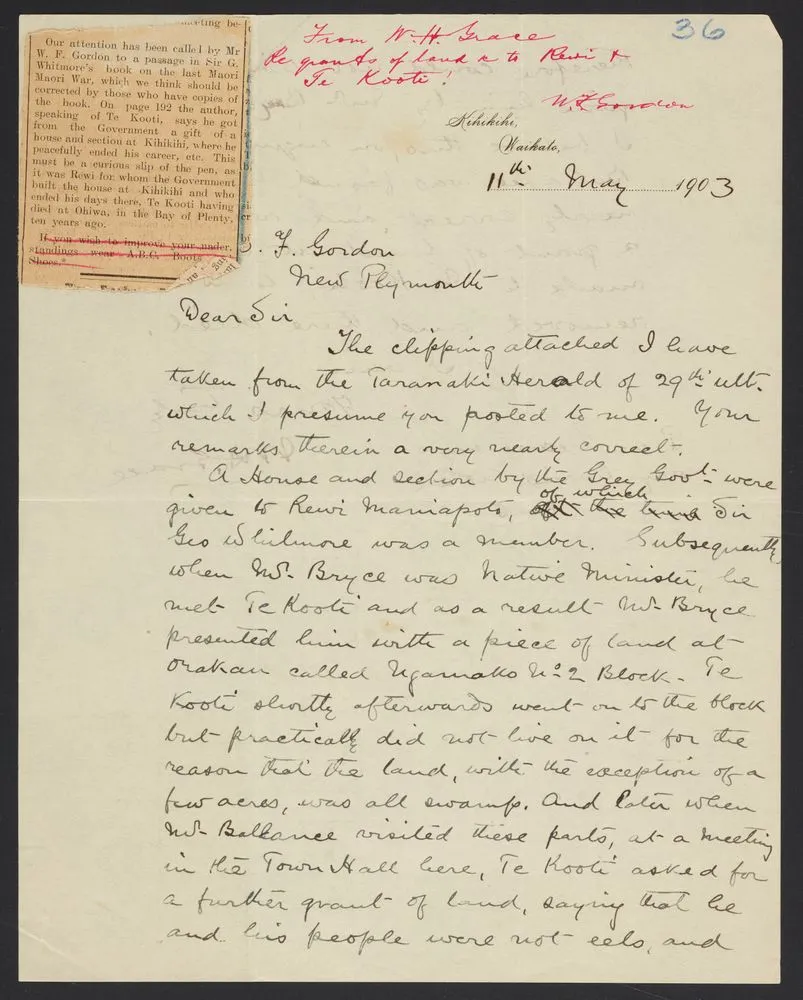 Our attention has been called by Mr
W. F. Gordon to a passage in Sir G.
Whitmore's book on the last Maori
Maori War, which we think should be
corrected by those who have copies of
the book. On page 192 the author,
speaking of Te Kooti, says he got
from the Government a gift of a
house and section at Kihikihi, where he
peacefully ended his career, etc. This
must be a curious slip of the pen, as
it was Rewi for whom the Government
built the house at Kihikihi and who
ended his days there, Te Kooti having
died at Ohiwa, in the Bay of Plenty,
ten years ago.
If you wish to improve your under-
standings wear A.B.C. Boots
Shoes.*
From W. H. Grace
Re grants of land &c to Rewi &
Te Kooti!
W. F. Gordon
36
Kihikihi,
Waikato,
11th May 1903
. F. Gordon
New Plymouth
Dear Sir
The clipping attached I have
taken from the Taranaki Herald of 29th ult.
which I presume you posted to me. Your
remarks therein a very nearly correct.
A House and section by the Grey Govt were
given to Rewi Maniapoto, of which Sir
Geo Whitmore was a member. Subsequently
when Mr Bryce was Native Minister, he
met Te Kooti and as a result Mr Bryce
presented him with a piece of land at
Orakau called Ngamako No 2 Block. Te
Kooti shortly afterwards went on to the block
but practically did not live on it for the
reason that the land, with the exception of a
few acres, was all swamp. And later when
Mr Ballance visited these parts, at a meeting
in the Town Hall here, Te Kooti asked for
a further grant of land, saying that he
and his people were not eels, and